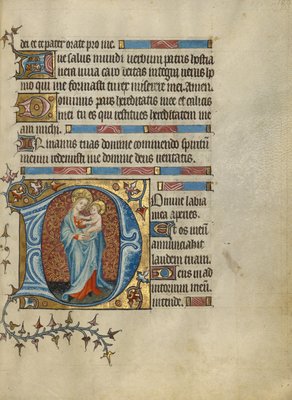 dei et et pater orate pro me.
Ave salus mundi verbum patris hostia
vera viva caro deitas integra verus homo
qui me formasti tuere miserere mei. amen.
Dominus pars hereditatis mee et calicis
mei tu es qui restitues hereditatem me
am michi.
In manus tuas domine commendo spiritum
meum redemisti me domine deus veritatis.
Domine labia
mea aperies.
Et os meum
annunciabit
laudem tuam.
Deus in ad
iutorium meum
intende.